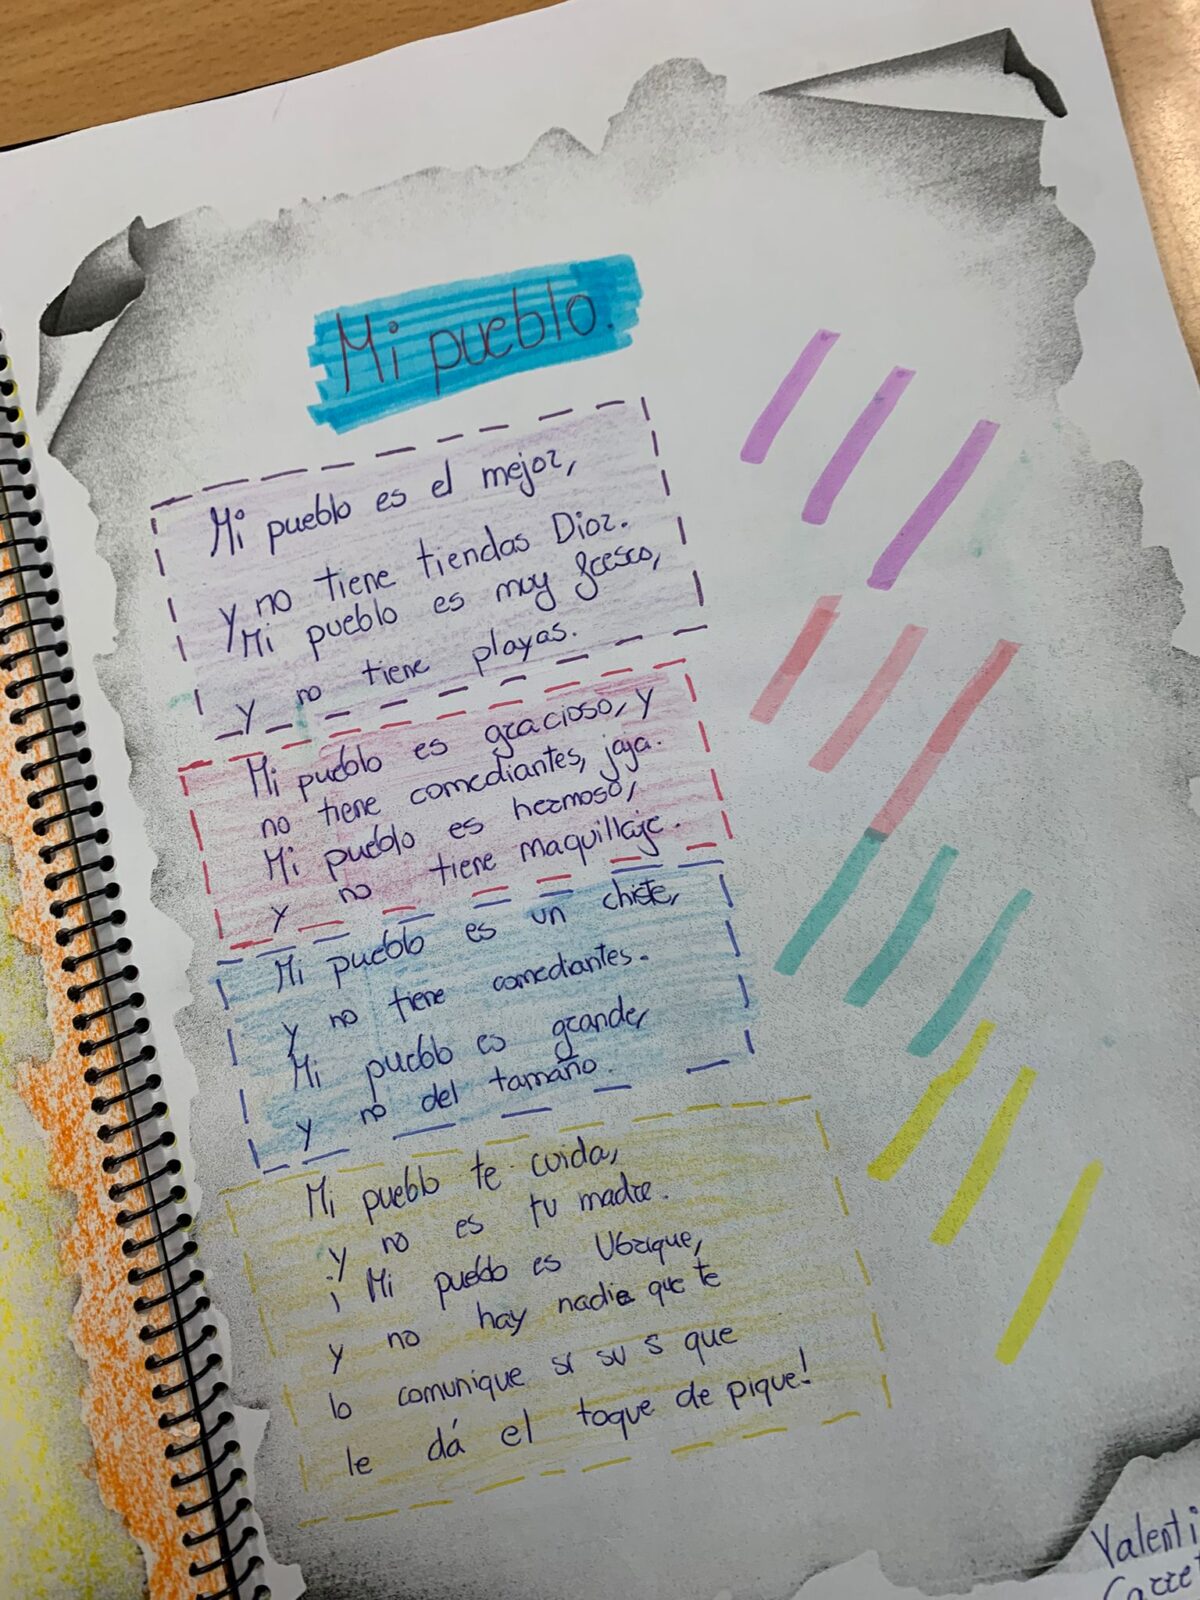 Mi pueblo.
Mi pueblo es el mejor,
y no tiene tiendas Dior.
Mi pueblo es muy fresco,
y no tiene playas.
Mi pueblo es gracioso, y
no tiene comediantes, jaja.
Mi pueblo es hermoso,
y no tiene maquillaje.
Mi pueblo es un chiste,
y no tiene comediantes.
Mi pueblo es grande,
y no del tamaño.
Mi pueblo te cuida,
y no es tu madre.
¡Mi pueblo es Ubrique,
y no hay nadie que te
lo comunique si su s que
le dá el toque de pique!
Valenti
Carre